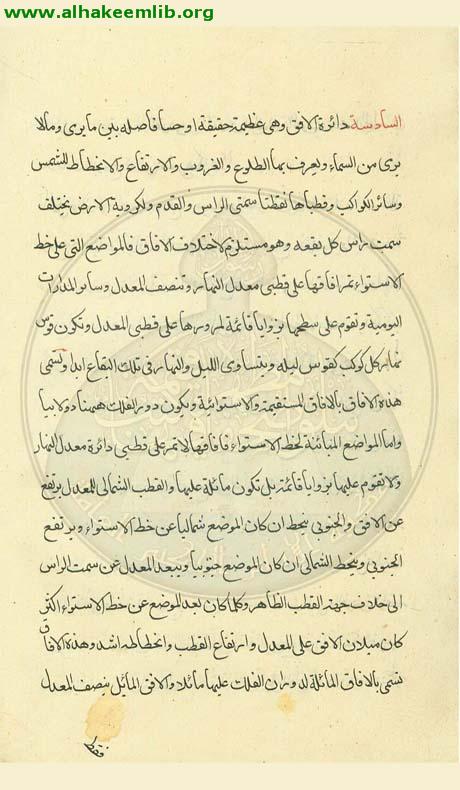 www.alhakeemlib.org
السادسة دائرة الافق وهى عظيمة حقيقة او حسا فاصله بين ما يرى وما لا
يرى من السماء ويعرف بها الطلوع والغروب والارتفاع والانحطاط للشمس
وسائر الكواكب وقطباها نقطتا سمتى الراس والقدم ولكروية الارض يختلف
سمت راس كل بقعه وهو مستلزم لاختلاف الافاق فالمواضع التى على خط
الاستواء تمر افاقها على قطبى معدل النهار وتنصف المعدل وسائر المدارات
اليومية وتقوم على سطحها بزوايا قائمة لمرورها على قطبى المعدل وتكون قوس
نهار كل كوكب كقوس ليله ويتساوى الليل والنهار فى تلك البقاع ابدا وتسمى
هذه الافاق بالافاق المستقيمة والاستوائية ويكون دور الفلك هيهنا دولابيا
واما المواضع المتبائنة لخط الاستواء فافاقها لا تمر على قطبى دائرة معدل النهار
ولا تقوم عليها بزوايا قائمة بل تكون مائلة عليها والقطب الشمالى للمعدل يرتفع
عن الافق والجنوبى ينحط ان كان الموضع شماليا عن خط الاستواء ويرتفع
الجنوبى وينحط الشمالى ان كان الموضع جنوبيا ويبعد المعدل عن سمت الراس
الى خلاف جهة القطب الظاهر وكل كان بعد الموضع عن خط الاستواء اكثر
كان ميلان الافق على المعدل وارتفاع القطب وانحطاطه اشد وهذه الافاق
تسمى بالافاق المائلة لدوران الفلك عليها مائلا والافق المائل ينصف المعدل
فقط